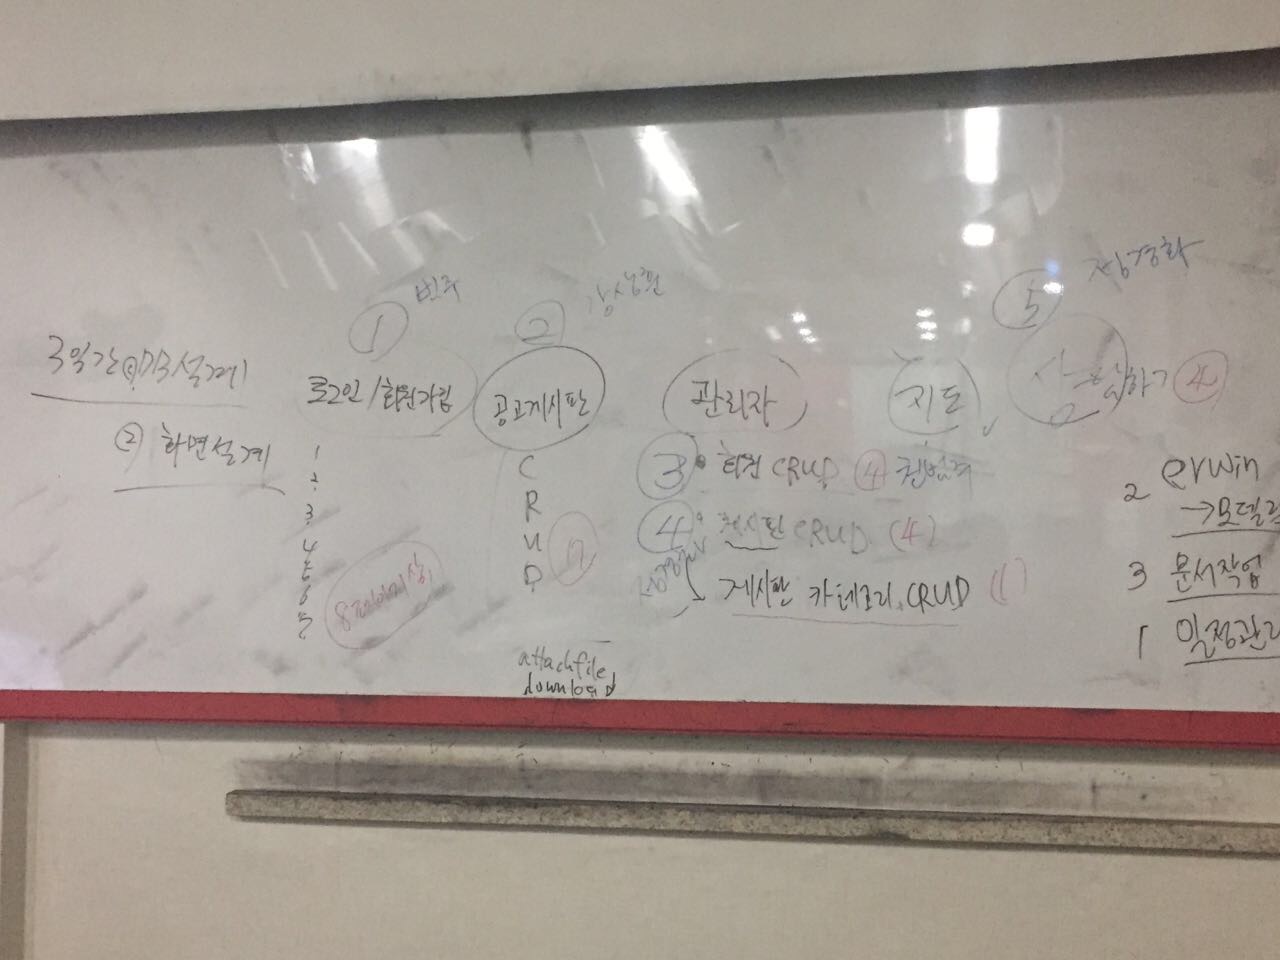 3일간 ① DB설계
② 화면설계
① 민주
로그인/회원가입
1
2
3
4
5
6
7
8페이지이상
②
공고게시판
C
R
U
D
7
attachfile
download
관리자
③ 회원 CRUD ④
④ 게시판 CRUD (4)
게시판 카테고리 CRUD (1)
지도
⑤ 심경화
하기 ④
2 erwin
→모델링
3 문서작업
1 일정관리